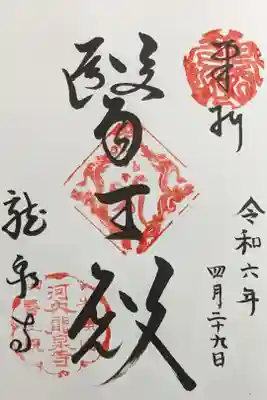 奉拝
令和六年
四月二十九日
醫王殿
龍泉寺
河内龍泉寺